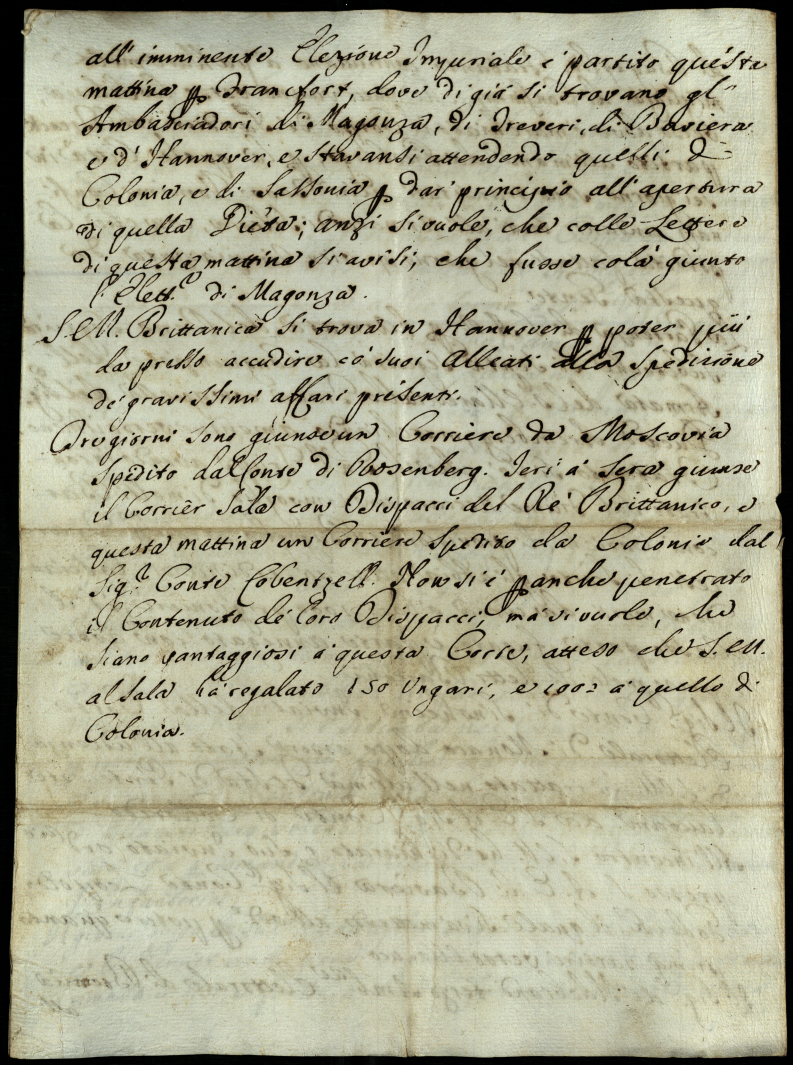 all' imminente Elezione Imperiale è partito questa
mattina p Francfort, dove di già si trovano gl'
Ambasciadori di Magonza, di Treveri, di Baviera
e d' Hannover, e stavansi attendendo quelli di
Colonia, e di Sassonia p dar' principio all' apertura
di quella Dieta; anzi si vuole, che colle Lettere
di questa mattina si avisi, che fusse colà giunto
l' Elett.re di Magonza.
S. M. Brittanica si trova in Hannover p poter più
da presso accudire co' suoi Alleati alla spedizione
de' gravissimi affari presenti.
Tre giorni sono giunse un Corriere da Moscovia
spedito dal Conte di Rosenberg. Ieri à sera giunse
il Corriêr Sala con Dispacci del Rè Brittanico, e
questa mattina un Corriere spedito da Colonia dal
Sig.r Conte Cobentzell. Non si è p anche penetrato
il Contenuto de' loro Dispacci, mà si vuole, che
siano vantaggiosi à questa Corte, atteso che S. M.
al Sala hà regalato 150 Ungari, e 100 à quello di
Colonia.